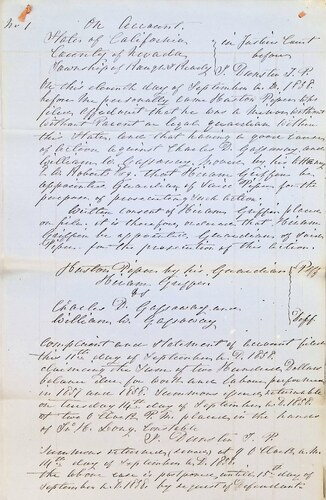 No 1 On Account.
State of California
County of Nevada in Justice Court
Township of Rough & Ready before
J. Dunster J. P.
On this eleventh day of September A. D. 1858.
before me personally came Huston Piper who
files affidavit that he is a minor without
Parent or legal Guardian within
this State, and that having a good cause
of Action against Charles D. Gassaway and
William W. Gassaway, moves by his Attorney
Roberts Esq. that Hiram Griffin be
appointed Guardian of said Piper for the
purpose of prosecuting such action.
Written consent of Hiram Griffin placed
on file. it is therefore ordered that Hiram
Griffin be appointed Guardian of said
Piper for the prosecution of this action.
Huston Piper by his Guardian
Hiram Griffin Plff
vs
Charles D. Gassaway and
William W. Gassaway Deff
Complaint and Statement of account filed
this 11th day of September A. D. 1858.
claiming the sum of two Hundred Dollars
balance due for work and labour performed
in 1857 and 1858. Summons issued returnable
on Tuesday 14th day of September A. D. 1858
at two O'Clock P. M. placed in the hands
of Long Constable
J. Dunster J. P.
Summons returned served at O'Clock
14th day of September A. D. 1858.
The above case postponed until 15th day of
September A. D. 1858 by request of Defendants